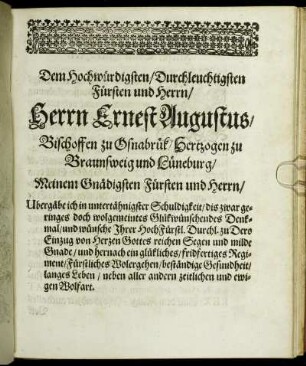 Dem Hochwürdigsten/Durchleuchtigsten
Fürsten und Herrn/
Herrn Ernest Augustus/
Bischoffen zu Osnabrük/Hertzogen zu
Braunsweig und Lüneburg/
Meinem Gnädigsten Fürsten und Herrn/
Ubergäbe ich in untertähnigster Schuldigkeit/dis zwar ge-
ringes doch wolgemeintes Glükwünschendes Denk-
mal/und wünsche Ihrer HochFürstl. Durchl. zu Dero
Einzug von Herzen Gottes reichen Segen und milde
Gnade/und hernach ein glükliches/fridfertiges Regi-
ment/Fürstliches Wolergehen/beständige Gesundheit/
langes Leben/neben aller andern zeitlichen und ewi-
gen Wolfart.